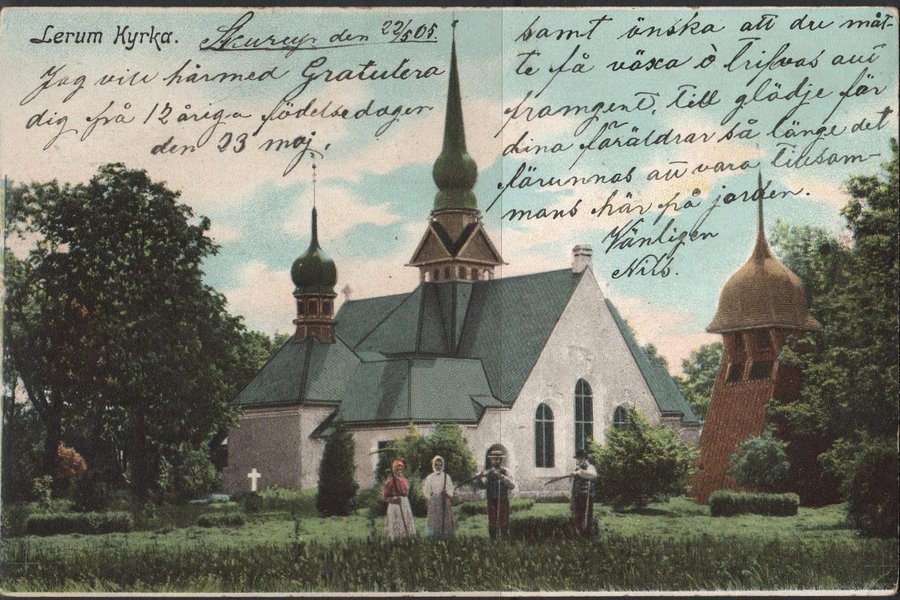 Lerum Kyrka.
Skurup den 22/5 05.
Jag vill härmed Gratulera
dig på 12 åriga födelsedagen
den 23 maj.
samt önska att du måt-
te få växa o trifvas allt
framgent, till glädje för
dina föräldrar så länge det
förunnas att vara tillsam-
mans här på jorden.
Vänligen
Nils.